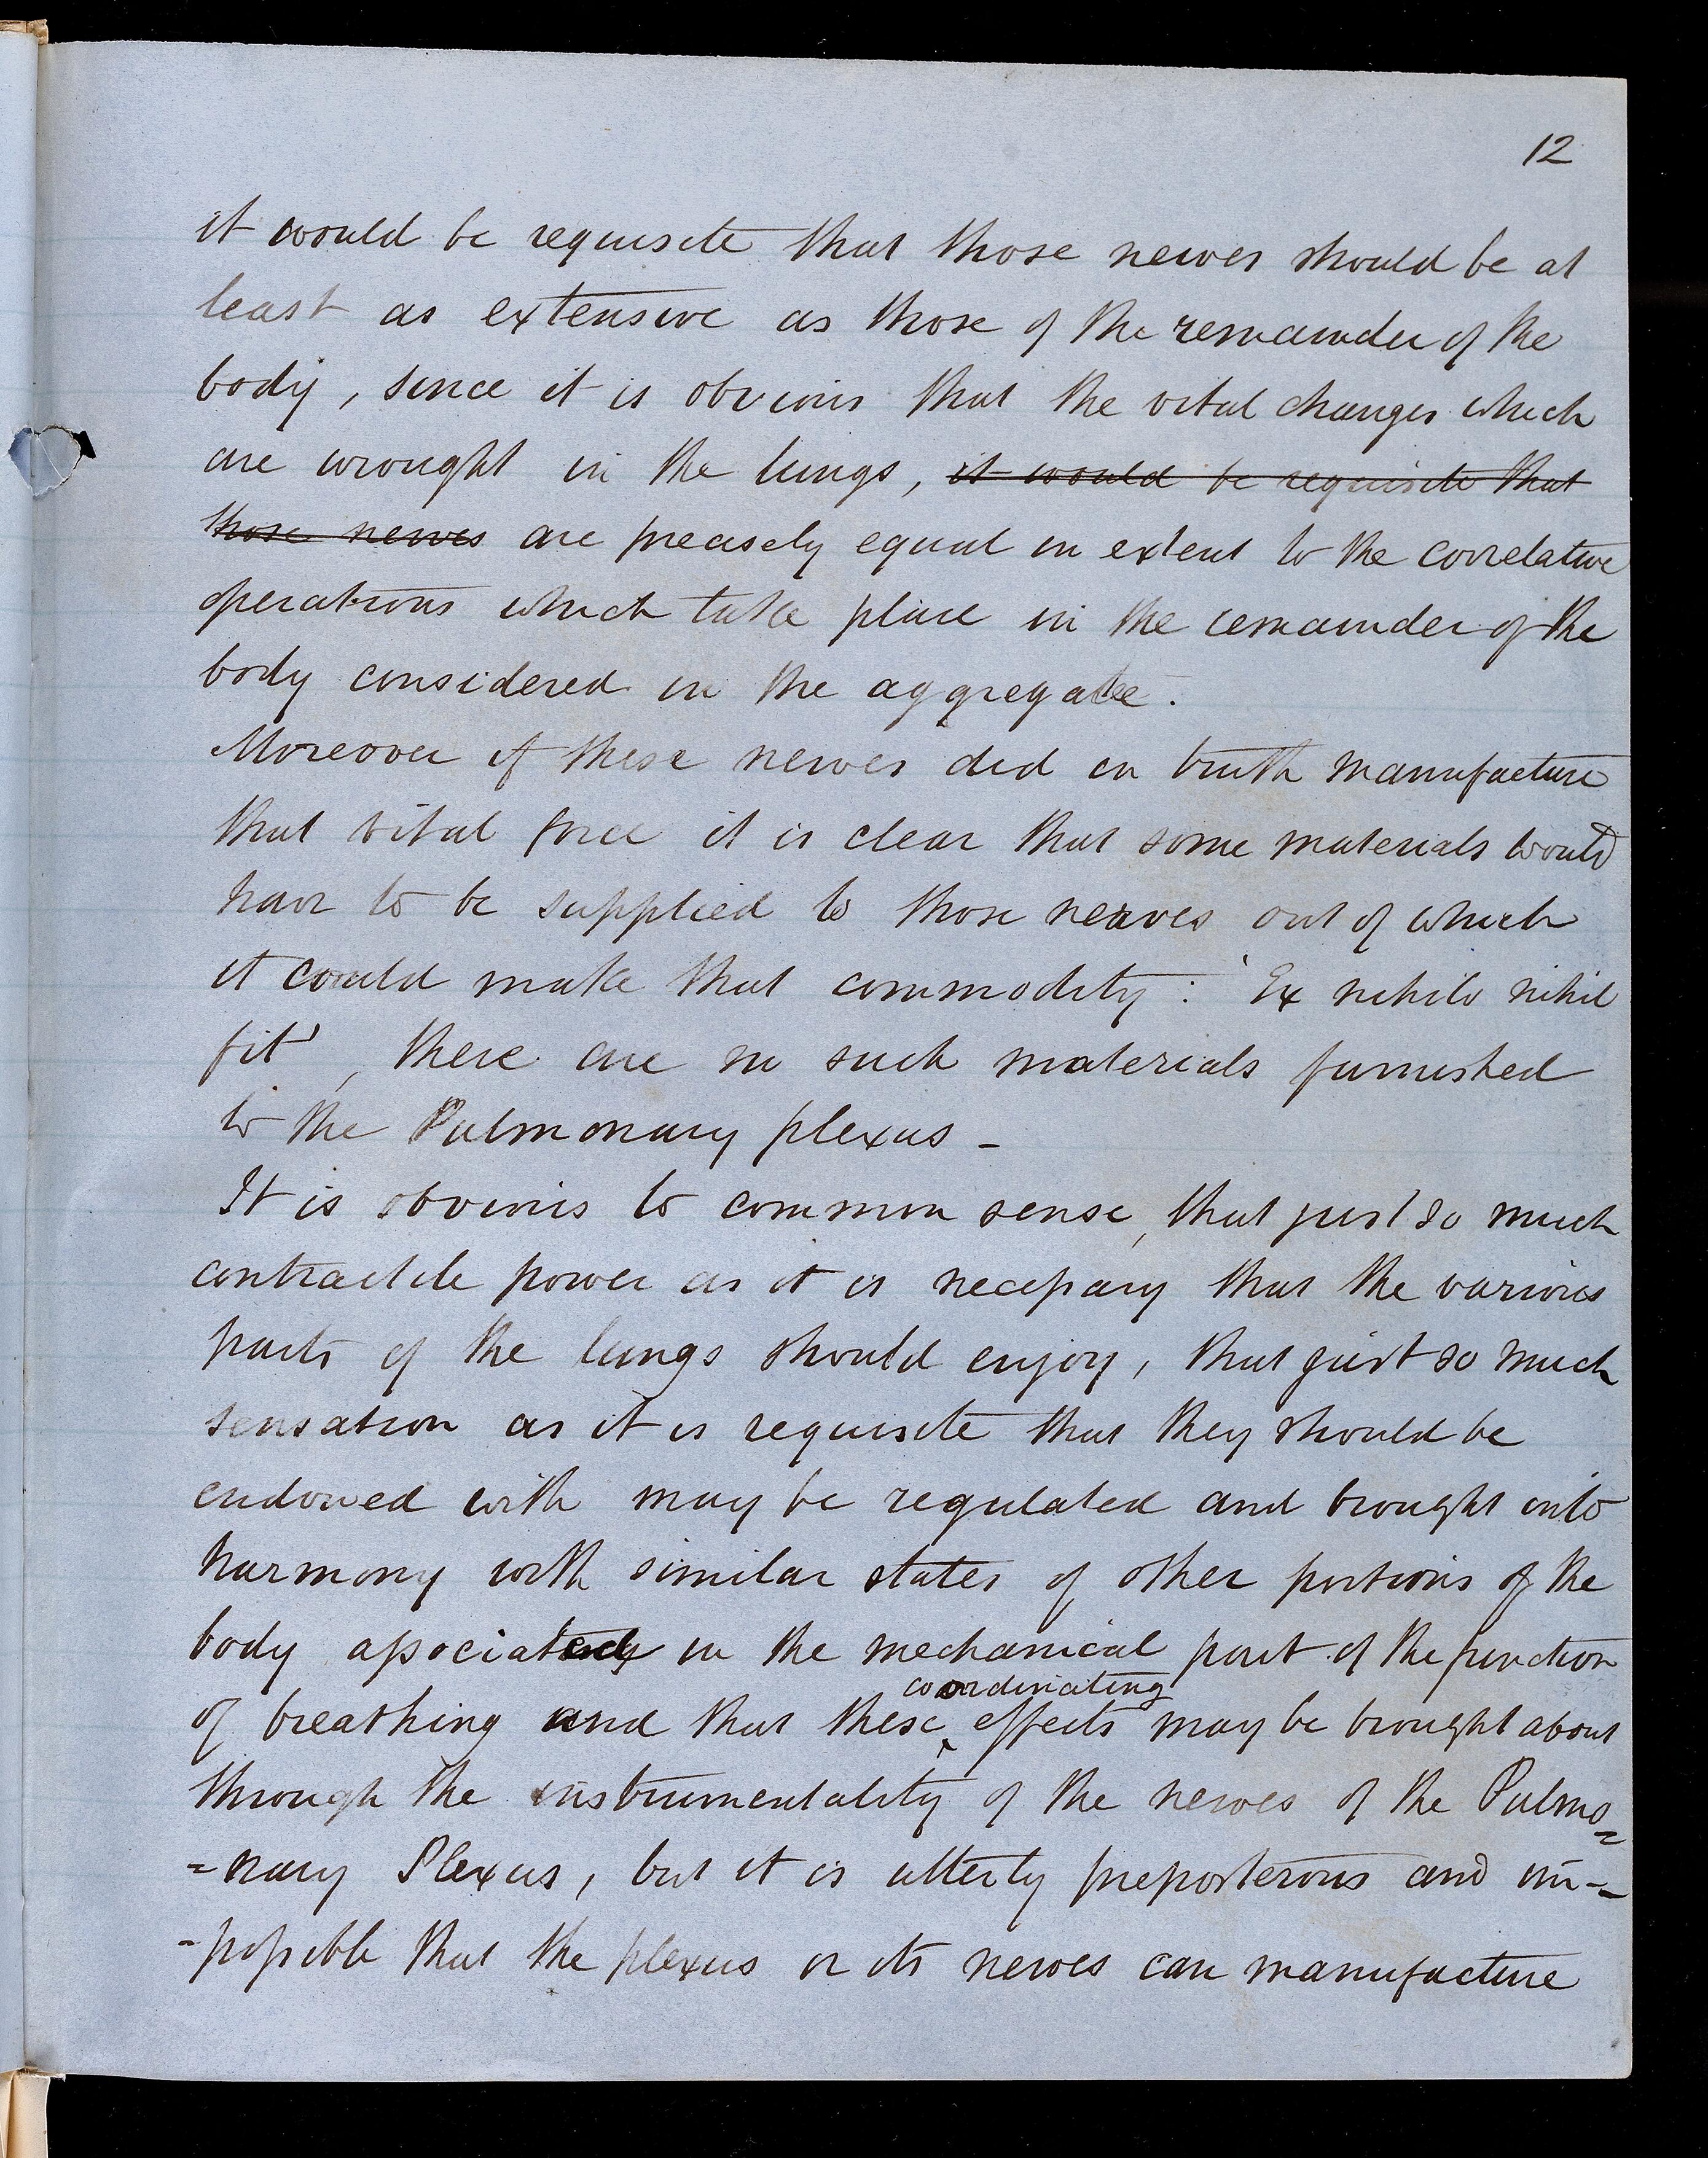 12
it would be requisite that those nerves should be at
least as extensive as those of the remainder of the
body, since it is obvious that the vital changes which
are wrought in the lungs, it would be requisite that
those nerves are precisely equal in extent to the correlative
operations which take place in the remainder of the
body considered in the aggregate.
Moreover if these nerves did in truth manufacture
that vital force it is clear that some materials would
have to be supplied to those nerves out of which
it could make that commodity: 'Ex nihilo nihil
fit', there are no such materials furnished
to the Pulmonary plexus -
It is obvious to common sense, that just so much
contractile power as it is necessary that the various
parts of the lungs should enjoy, that just so much
sensation as it is requisite that they should be
endowed with may be regulated and brought into
harmony with similar states of other portions of the
body associated in the mechanical part of the function
coordinating
of breathing and that these effects may be brought about
through the instrumentality of the nerves of the Pulmo=
=nary Plexus, but it is utterly preposterous and im-
-possible that the plexus or its nerves can manufacture